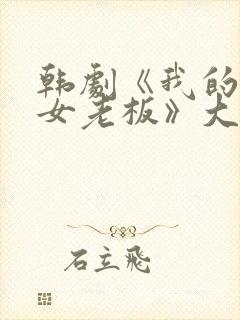 韩剧《我的
女老板》大
石立飛